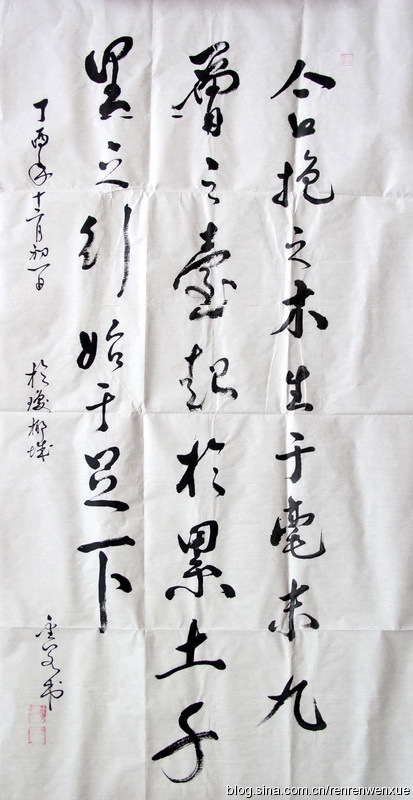 合抱之木生于毫末九
層之臺起於累土千
里之行始于足下
丁酉年十二月初一日
於瓊椰城
书
blog.sina.com.cn/renrenwenxue